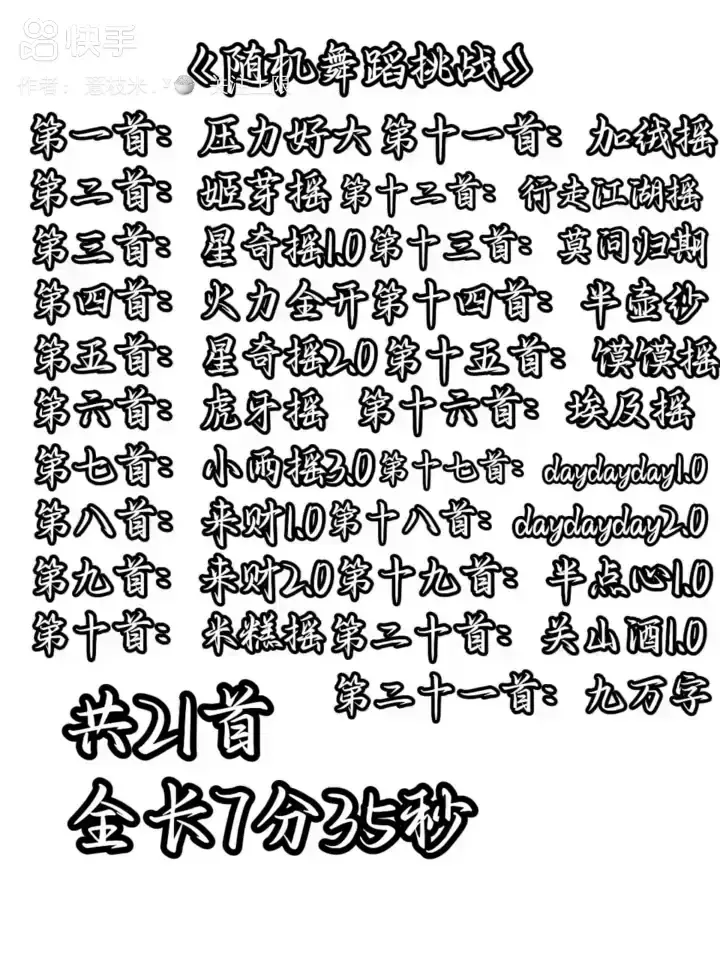 快手
《随机舞蹈挑战》
第一首：压力好大 第十一首：加绒摇
第二首：姬芽摇 第十二首：行走江湖摇
第三首：星奇摇1.0 第十三首：莫问归期
第四首：火力全开 第十四首：半壶纱
第五首：星奇摇2.0 第十五首：馍馍摇
第六首：虎牙摇 第十六首：埃及摇
第七首：小雨摇3.0 第十七首：daydayday1.0
第八首：来财1.0 第十八首：daydayday2.0
第九首：来财2.0 第十九首：半点心1.0
第十首：米糕摇 第二十首：关山酒1.0
第二十一首：九万字
共21首
全长7分35秒